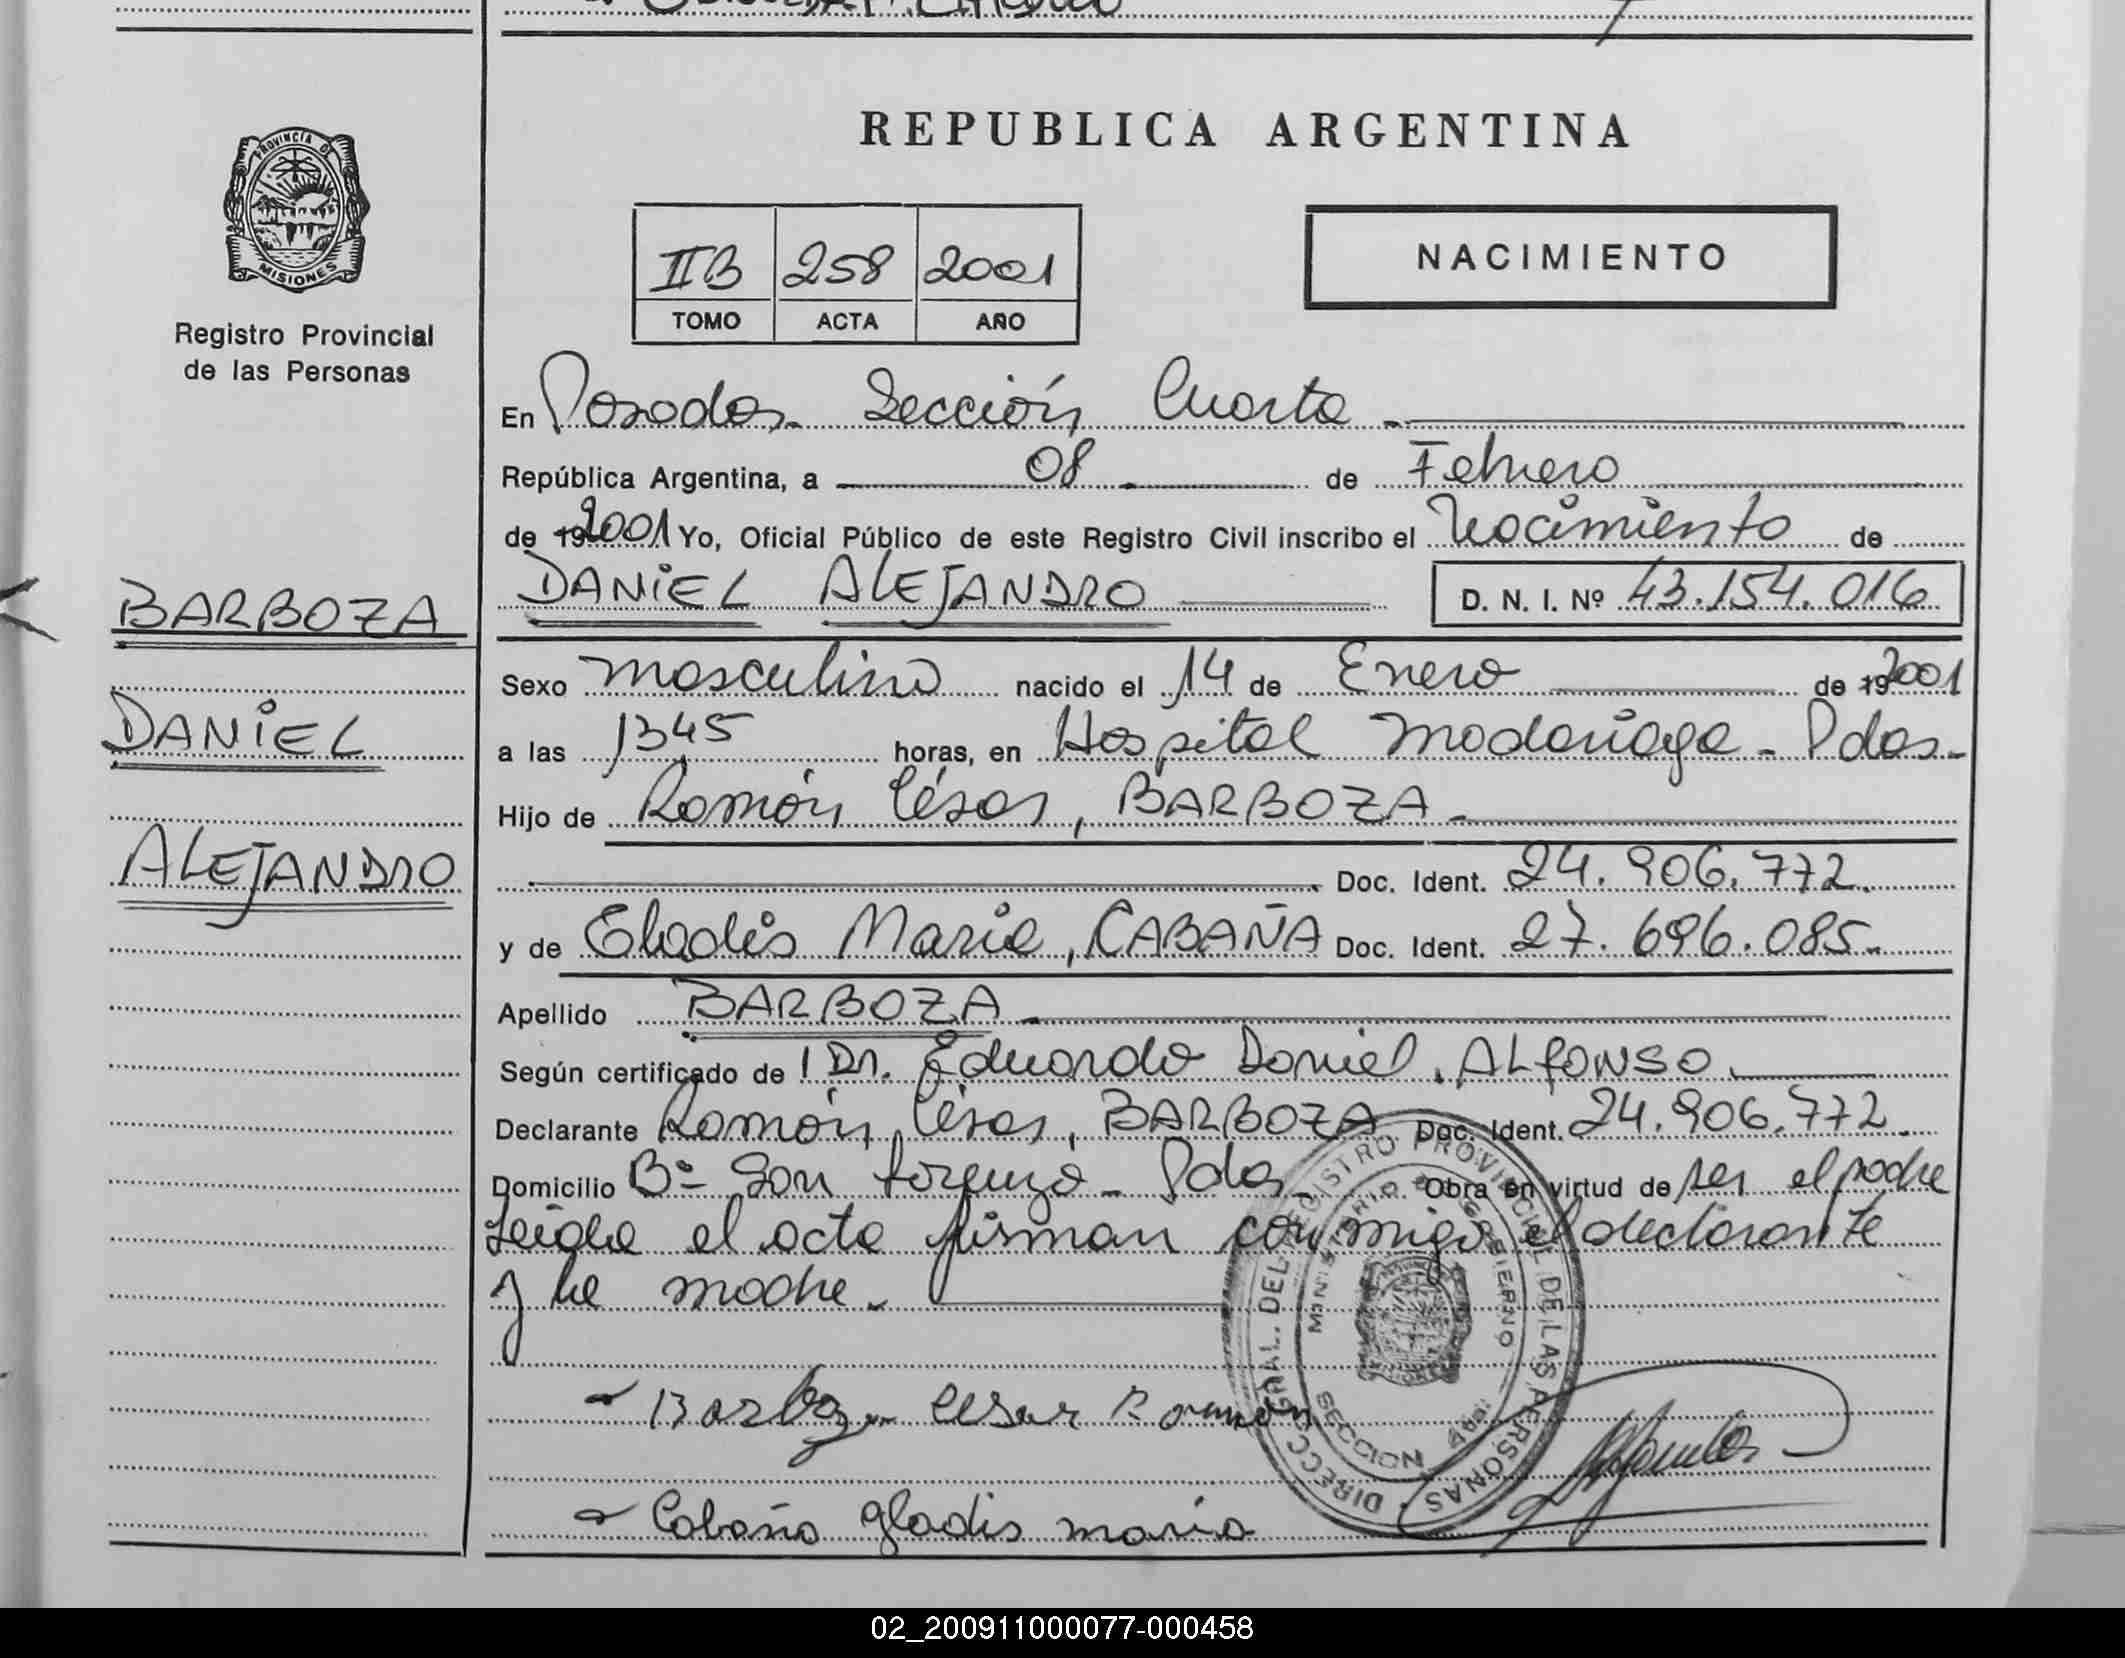 PROVINCIA DE
MISIONES
Registro Provincial
de las Personas
BARBOZA
DANIEL
ALEJANDRO
REPUBLICA ARGENTINA
IIB 258 2001
TOMO ACTA AÑO
NACIMIENTO
En Posadas Sección Cuarta
República Argentina, a 08 de Febrero
de 19 2001 Yo, Oficial Público de este Registro Civil inscribo el Nacimiento de
DANIEL ALEJANDRO D. N. I. Nº 43.154.016
Sexo masculino nacido el 14 de Enero de 19 2001
a las 1345 horas, en Hospital Madariaga - Pdas-
Hijo de Ramón César, BARBOZA
Doc. Ident. 24.906.772.
y de Gladis María, CABAÑA Doc. Ident. 27.696.085.
Apellido BARBOZA
Según certificado de Dr. Eduardo Daniel, ALFONSO.
Declarante Ramón César, BARBOZA Doc. Ident. 24.906.772.
Domicilio Bº San Lorenzo - Pdas- Obra en virtud de ser el padre
Leída el acta firman conmigo el declarante
y la madre.
DIRECC. GRAL. DEL REGISTRO PROVINCIAL DE LAS PERSONAS
MINISTERIO DE GOBIERNO
SECCION 4ta.
Barboza Cesar Ramón
Cabaña gladis maría
02_200911000077-000458